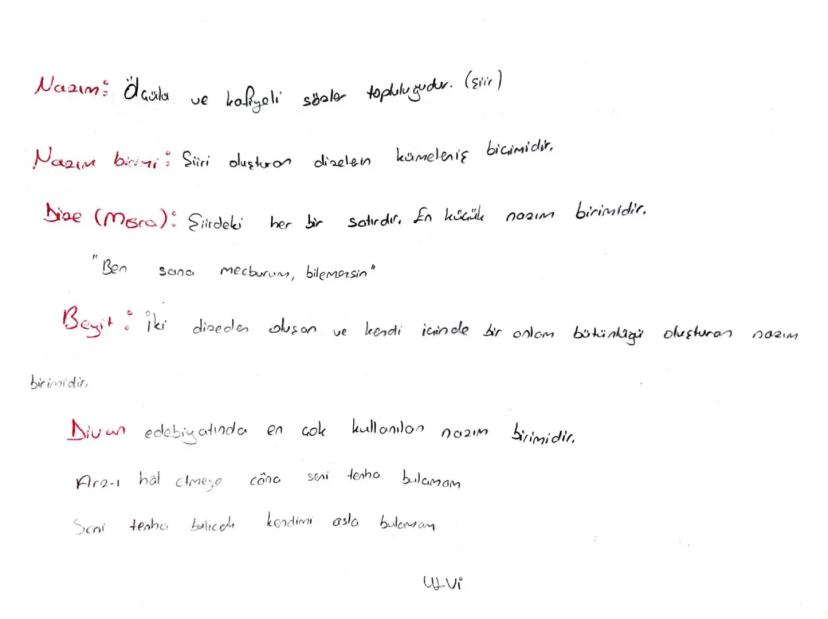 Nazım: Ölçülü ve kafiyeli sözler topluluğudur. (şiir)
Nazım birimi: Şiiri oluşturan dizelerin kümeleniş biçimidir.
Dize (Mısra): Şiirdeki her bir satırdır. En küçük nazım birimidir.
"Ben sana mecburum, bilemezsin"
Beyit: İki dizeden oluşan ve kendi içinde bir anlam bütünlüğü oluşturan nazım
birimidir.
Divan edebiyatında en çok kullanılan nazım birimidir.
Arz-ı hal etmeğe cânâ seni tenha bulamam
Seni tenha bulıcak kendimi asla bulamam
ULVİ